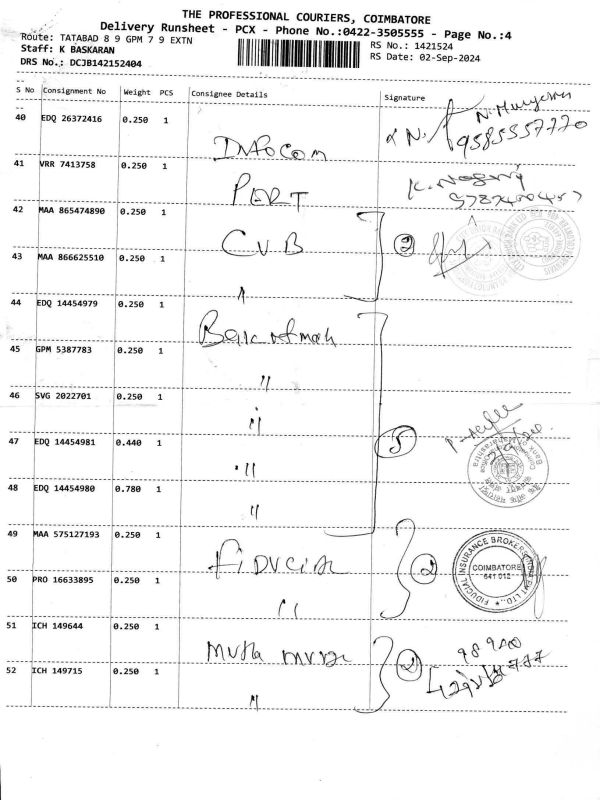 THE PROFESSIONAL COURIERS, COIMBATORE
Delivery Runsheet - PCX - Phone No.:0422-3505555 - Page No.:4
Route: TATABAD 8 9 GPM 7 9 EXTN
RS No.: 1421524
Staff: K BASKARAN
RS Date: 02-Sep-2024
DRS No.: DCJB142152404
S No Consignment No Weight PCS Consignee Details Signature
40 EDQ 26372416 0.250 1
9585557770
INFOCOM
41 VRR 7413758 0.250 1
PERT
42 MAA 865474890 0.250 1
CUB
2
43 MAA 866625510 0.250 1
44 EDQ 14454979 0.250 1
45 GPM 5387783 0.250 1
"
46 SVG 2022701 0.250 1
"
5
47 EDQ 14454981 0.440 1
"
Bank of Maharashtra
48 EDQ 14454980 0.780 1
"
49 MAA 575127193 0.250 1
FIDUCIAL
2
FIDUCIAL INSURANCE BROKERS
COIMBATORE
641 012
50 PRO 16633895 0.250 1
"
51 ICH 149644 0.250 1
2
52 ICH 149715 0.250 1
"